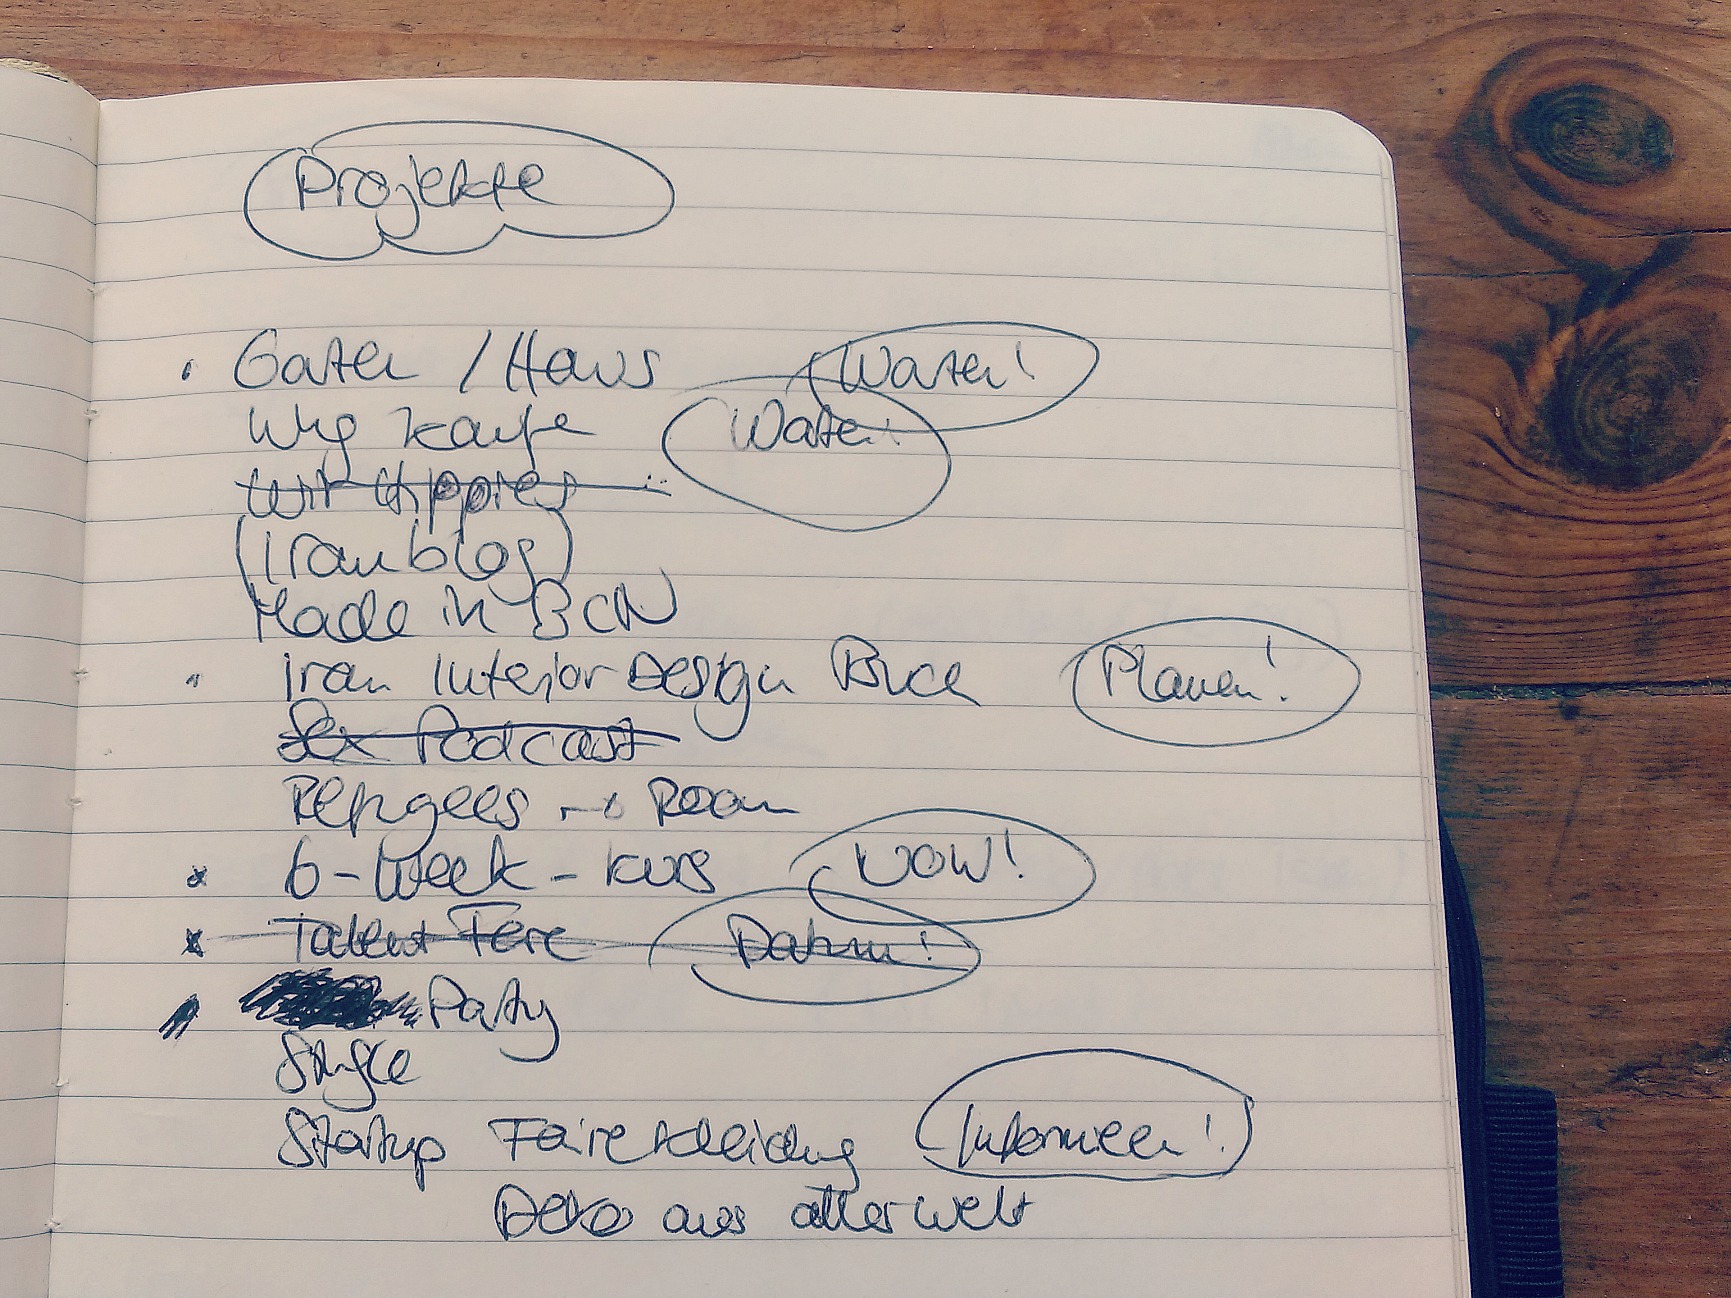 Projekte
Garten / Haus Warten!
Whg kaufen Warten!
Wir Hippies
(Iranblog)
Made in BCN
Iran Interior Design Buch Planen!
Sex Podcast
Refugees → Room
6-Week-Kurs NOW!
Talent Tere Datum!
Party
Single
Startup Faire Kleidung Informieren!
Deko aus aller Welt